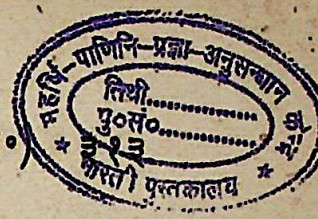 महर्षि-पाणिनि-प्रज्ञा-अनुसन्धान
तिथी..............
पु०सं०..............
३१३
भारती पुस्तकालय